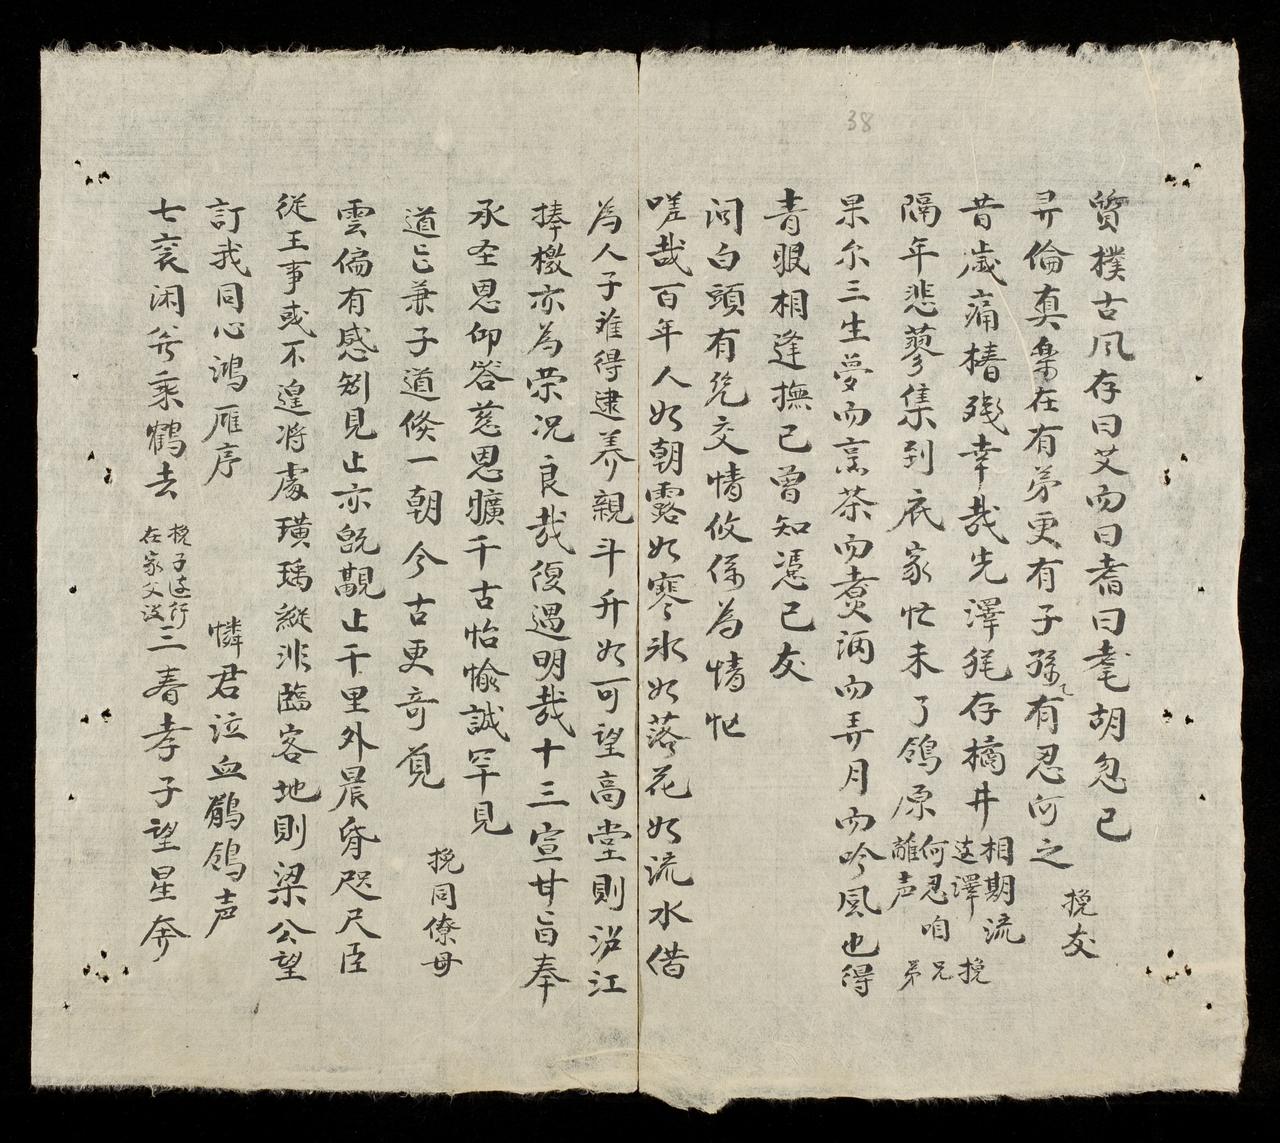 38
質樸古风存曰艾而曰耆曰耄胡忽已
昇倫真樂在有弟更有子孫有忍何之 挽友
昔歲痛椿殘幸哉先澤猶存橘井相期流遠澤
隔年悲蓼集到底家忙未了鴒原何忍咱離声 挽兄弟
果尔三生夢而烹茶而煑酒而弄月而吟風也得
青眼相逢撫已曾知憑已友
问白頭有几交情攸係為情忙
嗟哉百年人如朝露如寒氷如落花如流水借
為人子难得逮养親斗升如可望高堂則沿江
捧檄亦為荣况良哉復遇明哉十三宣甘旨奉
承圣恩仰答慈恩曠千古怡愉誠罕見
道兼子道倏一朝今古更奇覓 挽同僚母
雲偏有感矧見止亦既覯止千里外晨昏咫尺臣
從王事或不遑将處璜瑀縱非臨客地則梁公望
訂我同心鴻雁序 憐君泣血鶺鴒声
七袠闲兮乘鶴去 挽子逺行在家父没 三春孝子望星奔